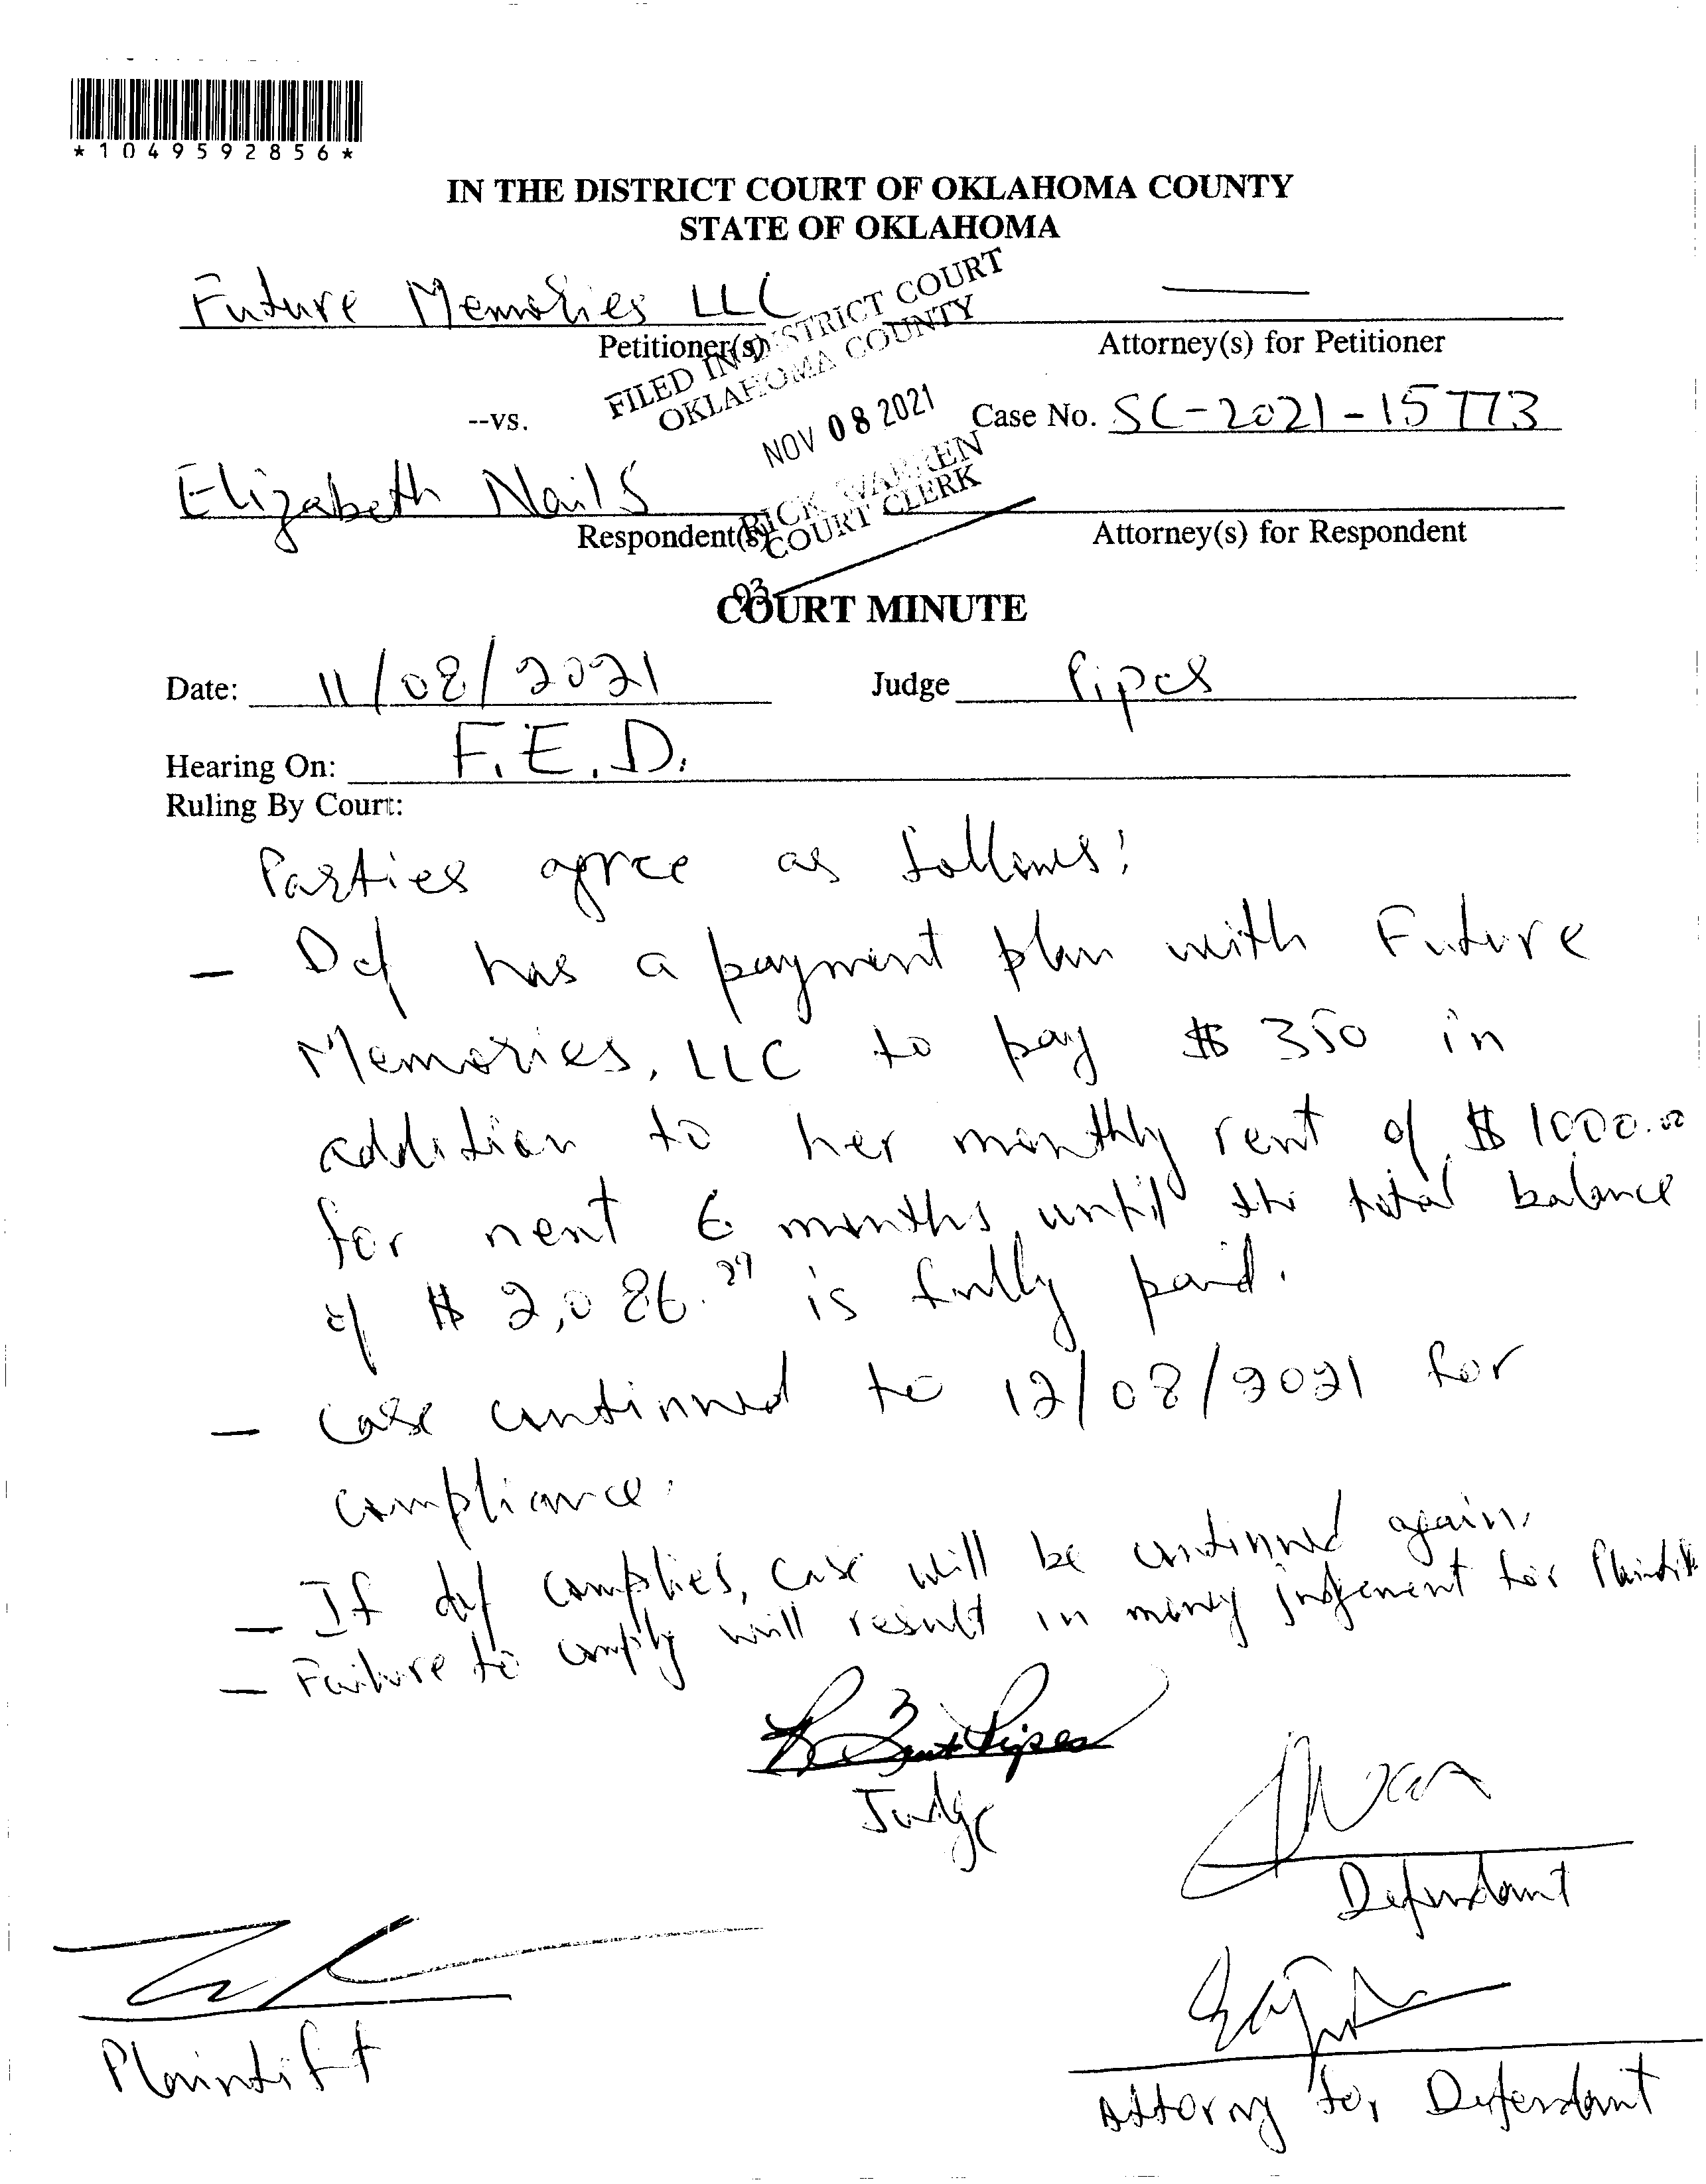 *1049592856*
IN THE DISTRICT COURT OF OKLAHOMA COUNTY
STATE OF OKLAHOMA
Future Memories LLC
Petitioner(s)
Attorney(s) for Petitioner
FILED IN DISTRICT COURT
OKLAHOMA COUNTY
--vs.
NOV 08 2021
Case No. SC-2021-15773
Elizabeth Nails
RICK WARREN
COURT CLERK
Respondent(s)
Attorney(s) for Respondent
93
COURT MINUTE
Date: 11/08/2021 Judge Pipes
Hearing On: F.E.D.
Ruling By Court:
Parties agree as follows:
- Def has a payment plan with Future
Memories, LLC to pay $350 in
addition to her monthly rent of $1000.00
for next 6 months, until the total balance
of $2,086.29 is fully paid.
- Case continued to 12/08/2021 for
compliance.
- If def complies, case will be continued again.
- Failure to comply will result in money judgement for Plaintiff
Judge
Defendant
Plaintiff
Attorny for Defendant